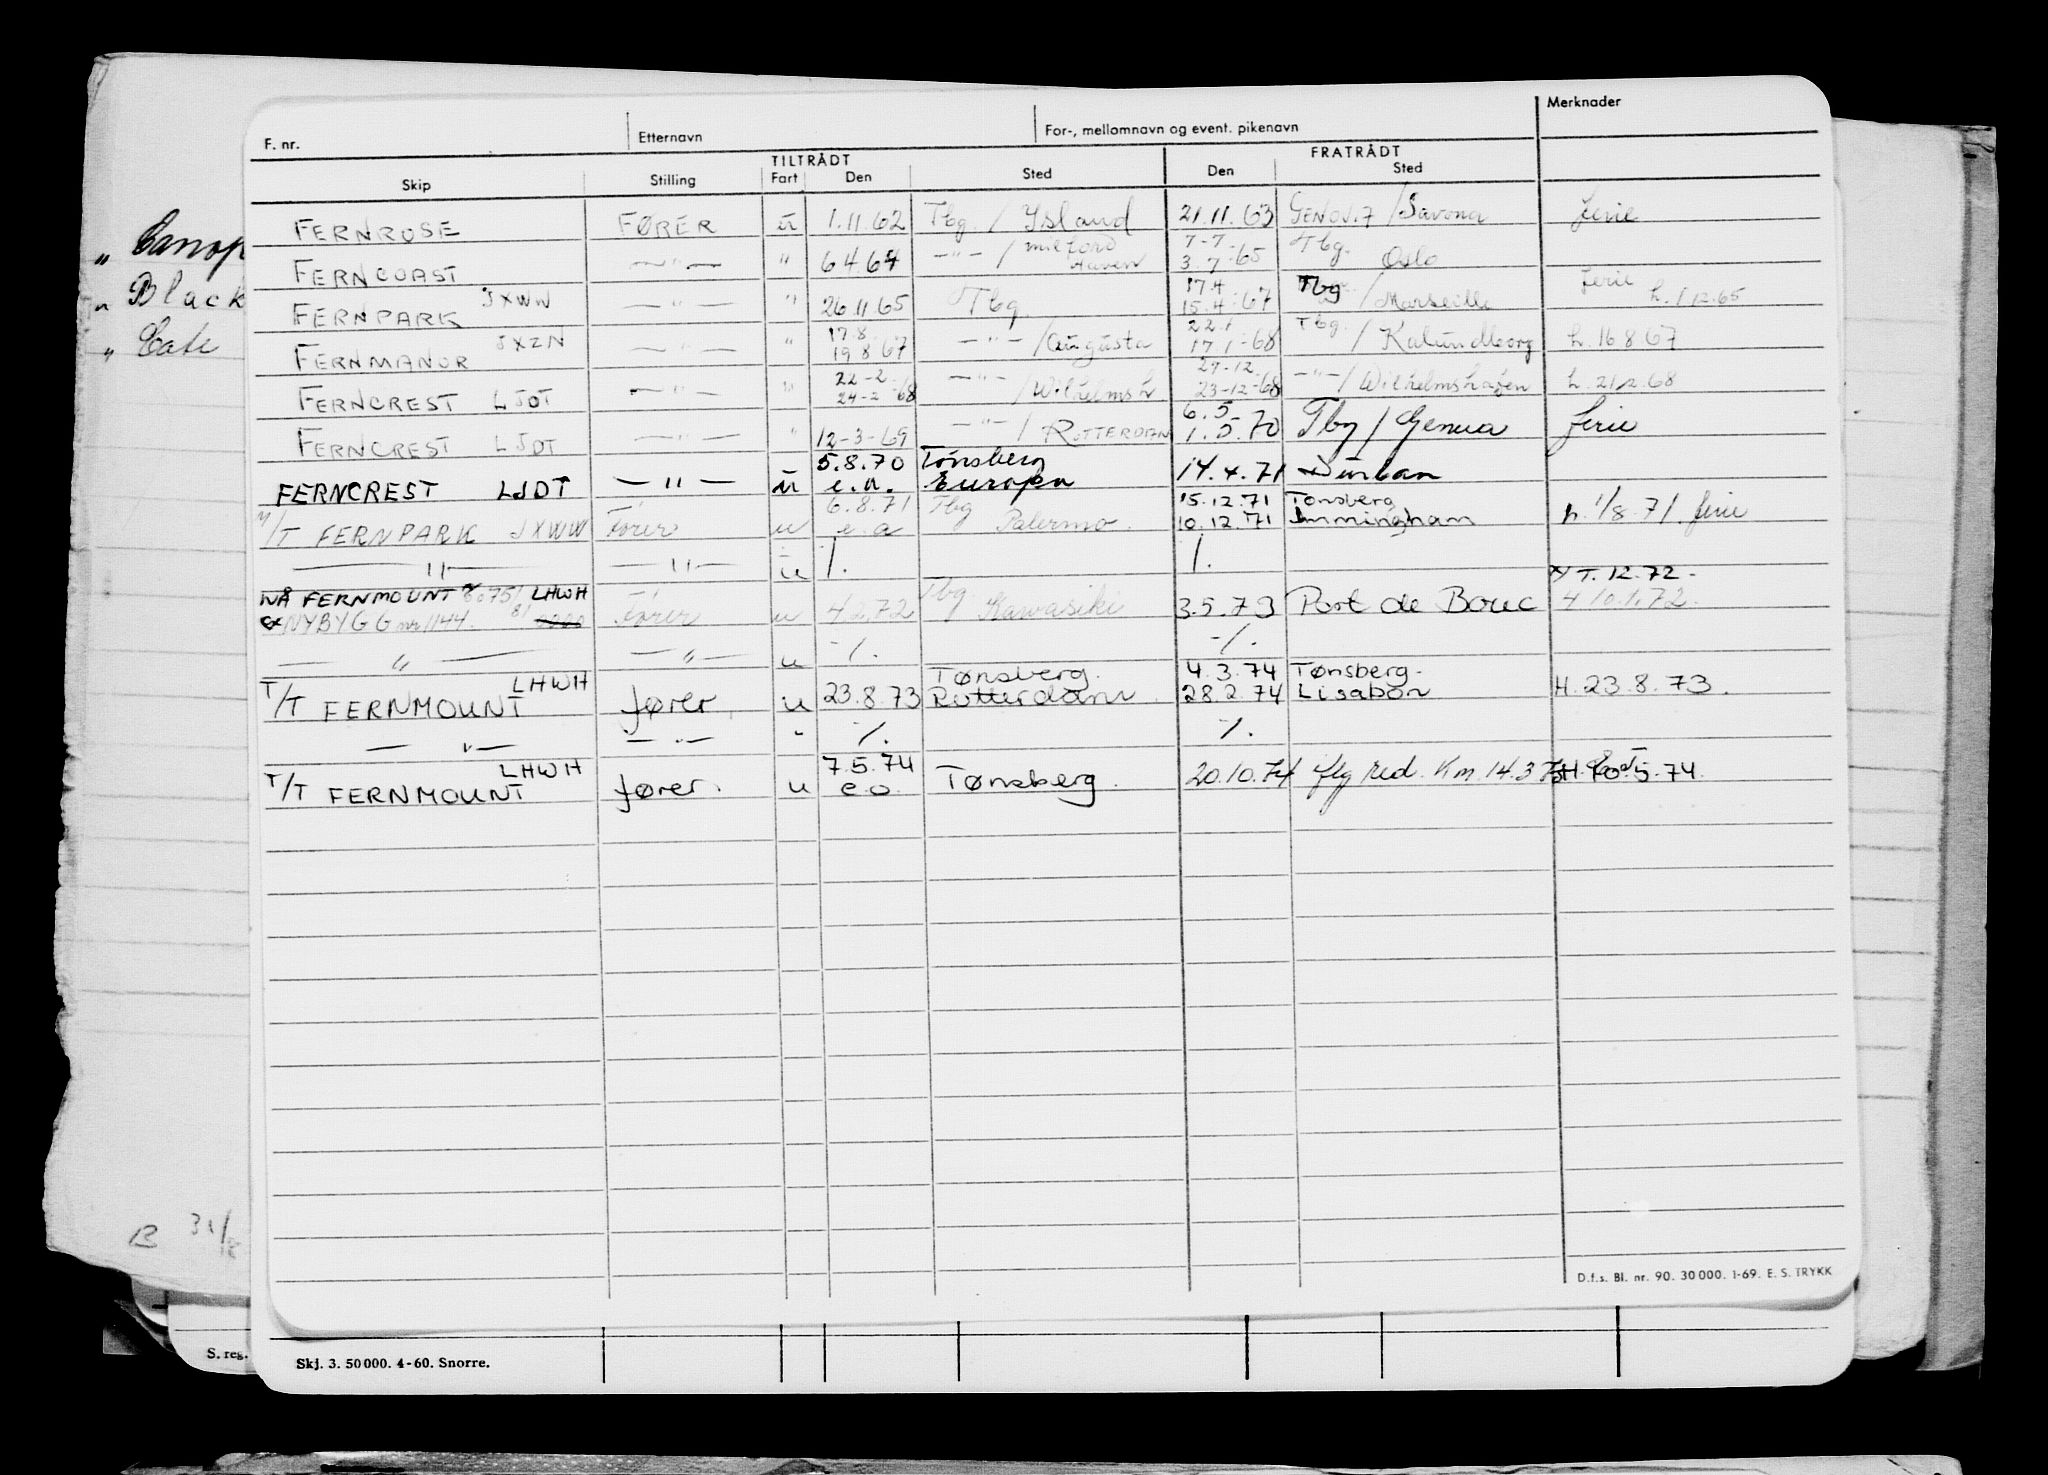 F. nr. Etternavn For-, mellomnavn og event. pikenavn Merknader
TILTRÅDT FRATRÅDT
Skip Stilling Fart Den Sted Den Sted
FERNROSE FØRER u 1.11.62 Tbg. / Island 21.11.63 / Savona ferie
FERNCOAST —"— " 6 4 64 —"— / Milford Haven 7-7- 3.7-65 Tbg. Oslo
FERNPARK JXWW —"— " 26 11 65 Tbg 17.4 15.4.67 Tbg / Marseille ferie h. 1 12.65
FERNMANOR JXZN —"— " 17.8. 19 8 67 —"— / Augusta 22.1 17 1-68 Tbg. / Kalundborg h. 16 8 67
FERNCREST LJDT —"— " 22-2- 24-2-68 —"— / Wilhelmsh 27-12. 23-12-68 —"— / Wilhelmshafen h. 21/2.68
FERNCREST LJDT —"— " 12-3-69 —"— / ROTTERDAM 6.5. 1.5.70 Tbg / Genua ferie
FERNCREST LJDT —"— u 5.8.70 e.a. Tønsberg Europa 14.4.71 Durban
M/T FERNPARK JXWW Fører u 6.8.71 e.a Tbg Palermo. 15.12.71 10.12.71 Tønsberg Immingham h. 1/8.71. ferie
—"— —"— u ./. ./.
NÅ FERNMOUNT LHWH
ex NYBYGG nr 1144. Fører u 4.2.72 Tbg Kawasiki 3.5.73 Port de Bouc 4 10.1.72.
—"— —"— u ./. ./.
T/T FERNMOUNT LHWH fører. u 23.8.73 Tønsberg. Rotterdam. 4.3.74 28.2.74 Tønsberg. Lisabon H. 23.8.73.
—"— —"— " ./. ./.
T/T FERNMOUNT LHWH fører. u 7.5.74 e.o. Tønsberg. 20.10.74 flg red. Km 14.3 H. 10.5.74.
D.f.s. Bl. nr. 90. 30 000. 1-69. E. S. TRYKK
" Black
" Cate
B 31/12
S. reg.
Skj. 3. 50 000. 4-60. Snorre.